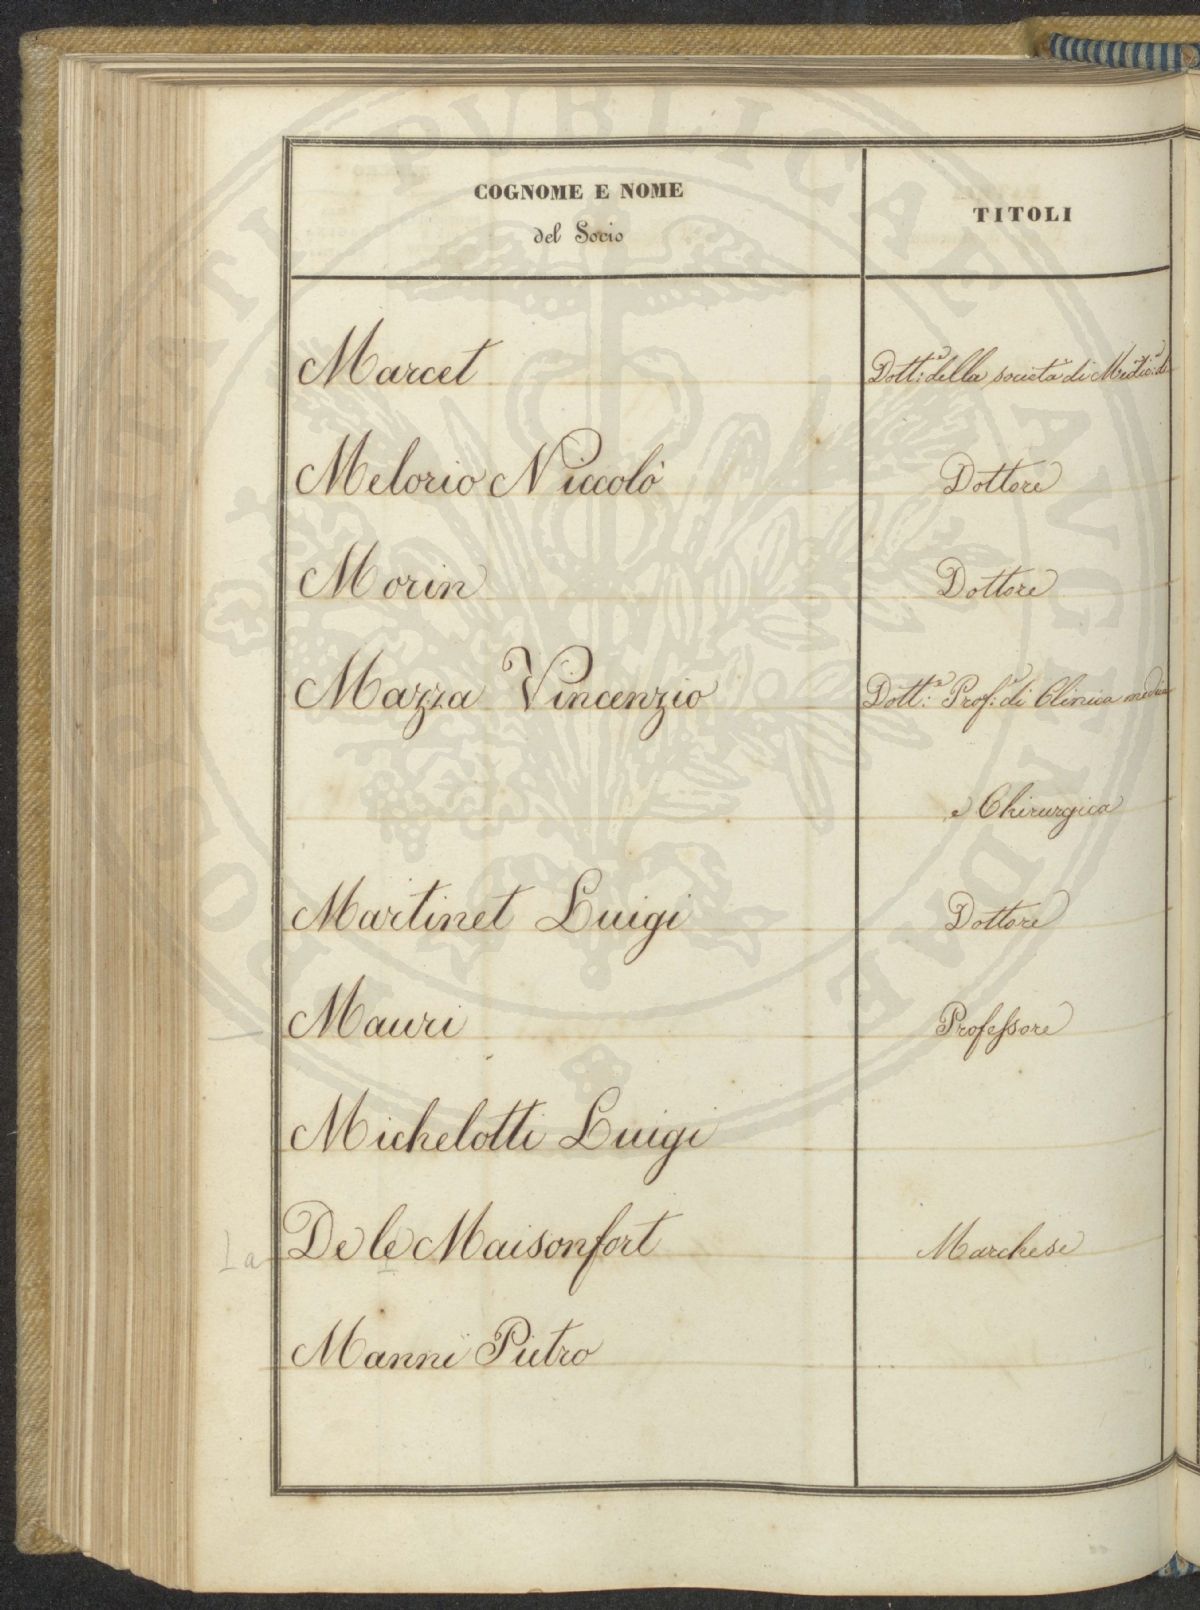 COGNOME E NOME
del Socio
TITOLI
Marcet Dott:e della società di Medic:a di
Melorio Niccolò Dottore
Morin Dottore
Mazza Vincenzio Dott:e Prof:e di Clinica medica
e Chirurgica
Martinet Luigi Dottore
Mauri Professore
Michelotti Luigi
La De le Maisonfort Marchese
Manni Pietro